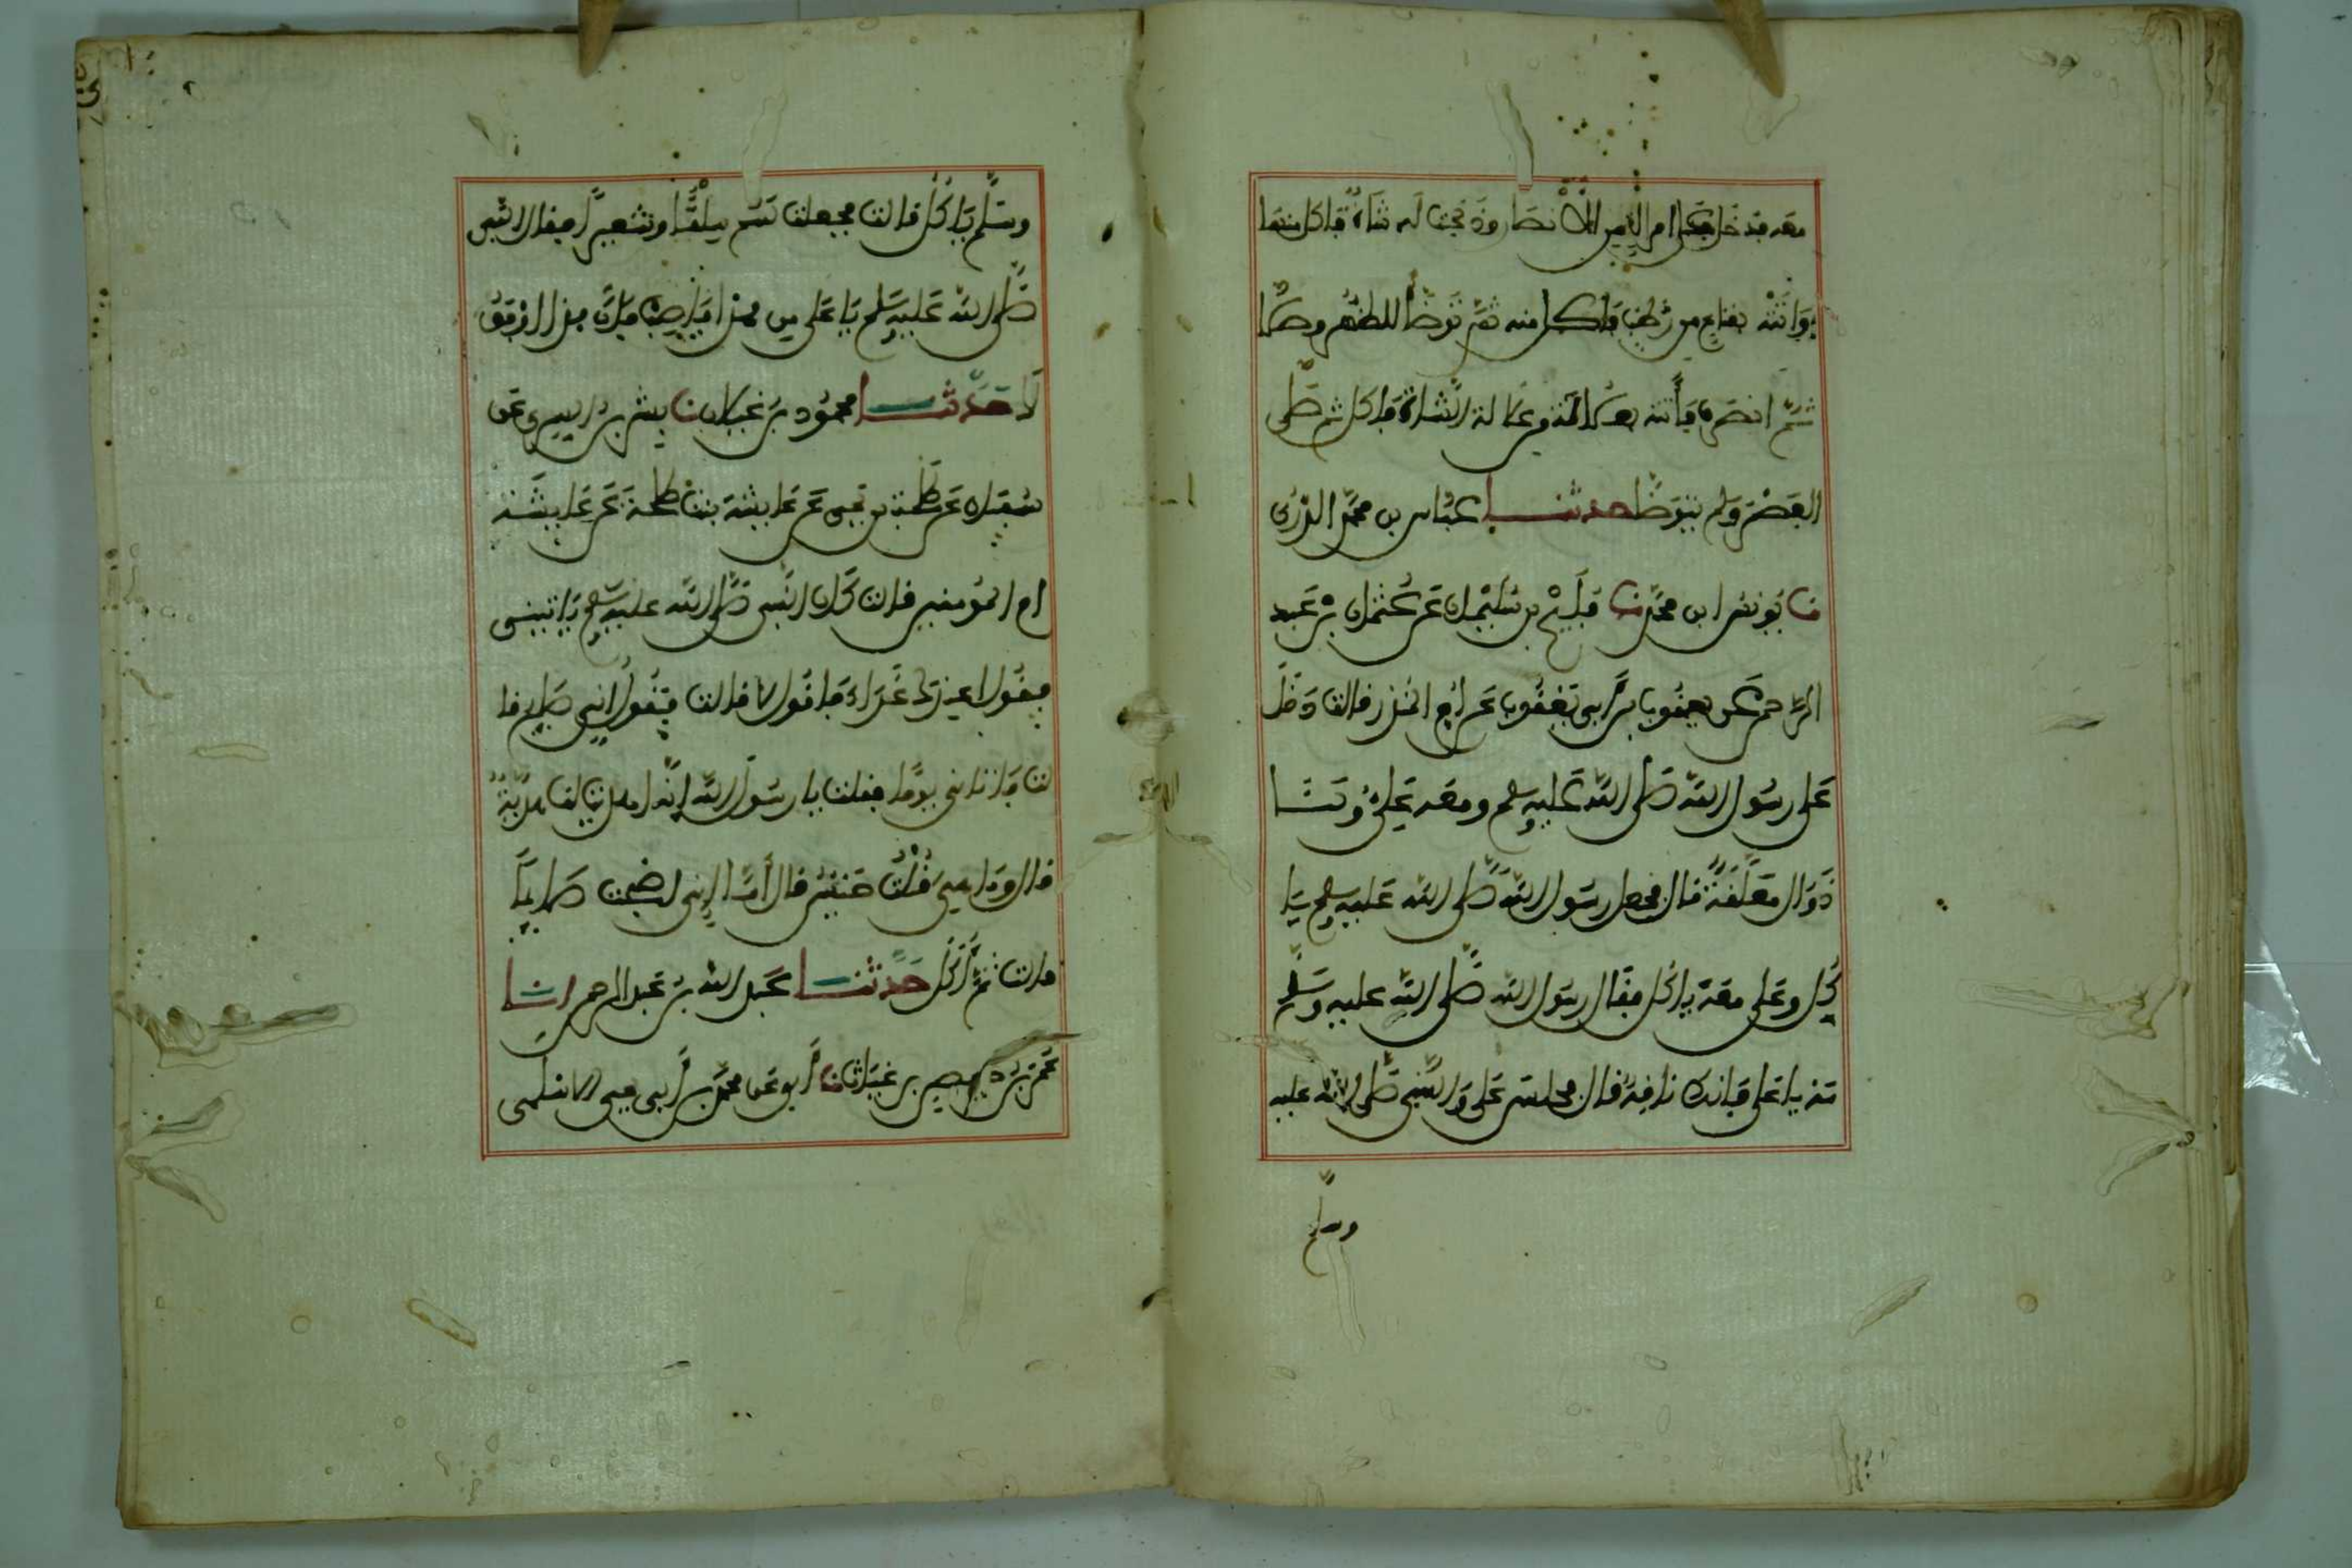 معه فدخل على امراة من الانصار وذبحت له شاة فاكل منها
واتته بقناع من رطب فاكل منه ثم توضأ للظهر وصلى
ثم انصرف فأتته بعلالة من علالة الشاة فاكل ثم صلى
العصر ولم يتوضا حدثنا عباس بن محمد الدوري
نا يونس ابن محمد نا فليح بن سليمان عن عثمان بن عبد
الرحمن عن يعقوب بن أبي يعقوب عن أم المنذر قالت دخل
على رسول الله صلى الله عليه وسلم ومعه علي ولنا
دوال معلقة قال فجعل رسول الله صلى الله عليه وسلم يا
كل وعلي معه ياكل فقال رسول الله صلى الله عليه وسلم
مه يا علي فانك ناقه قال فجلس علي والنبي صلى الله عليه
وسلم
وسلم ياكل قالت فجعلت لهم سلقا وشعيرا فقال النبي
صلى الله عليه وسلم يا علي من هذا فاصب فان هذا اوفق
لك حدثنا محمود بن غيلان نا بشر بن السري عن
سفيان عن طلحة بن يحيى عن عايشة بنت طلحة عن عايشة
ام المؤمنين قالت كان النبي صلى الله عليه وسلم ياتيني
فيقول اعندك غداء فاقول لا قالت فيقول اني صايم قا
لت فاتاني يوما فقلت يا رسول الله انه اهديت لنا هدية
قال وما هي قلت حيس قال أما اني اصبحت صايما
قالت ثم أكل حدثنا عبد الله بن عبد الرحمن انا
عمر بن حفص بن غياث نا أبي عن محمد بن أبي يحيى الاسلمي